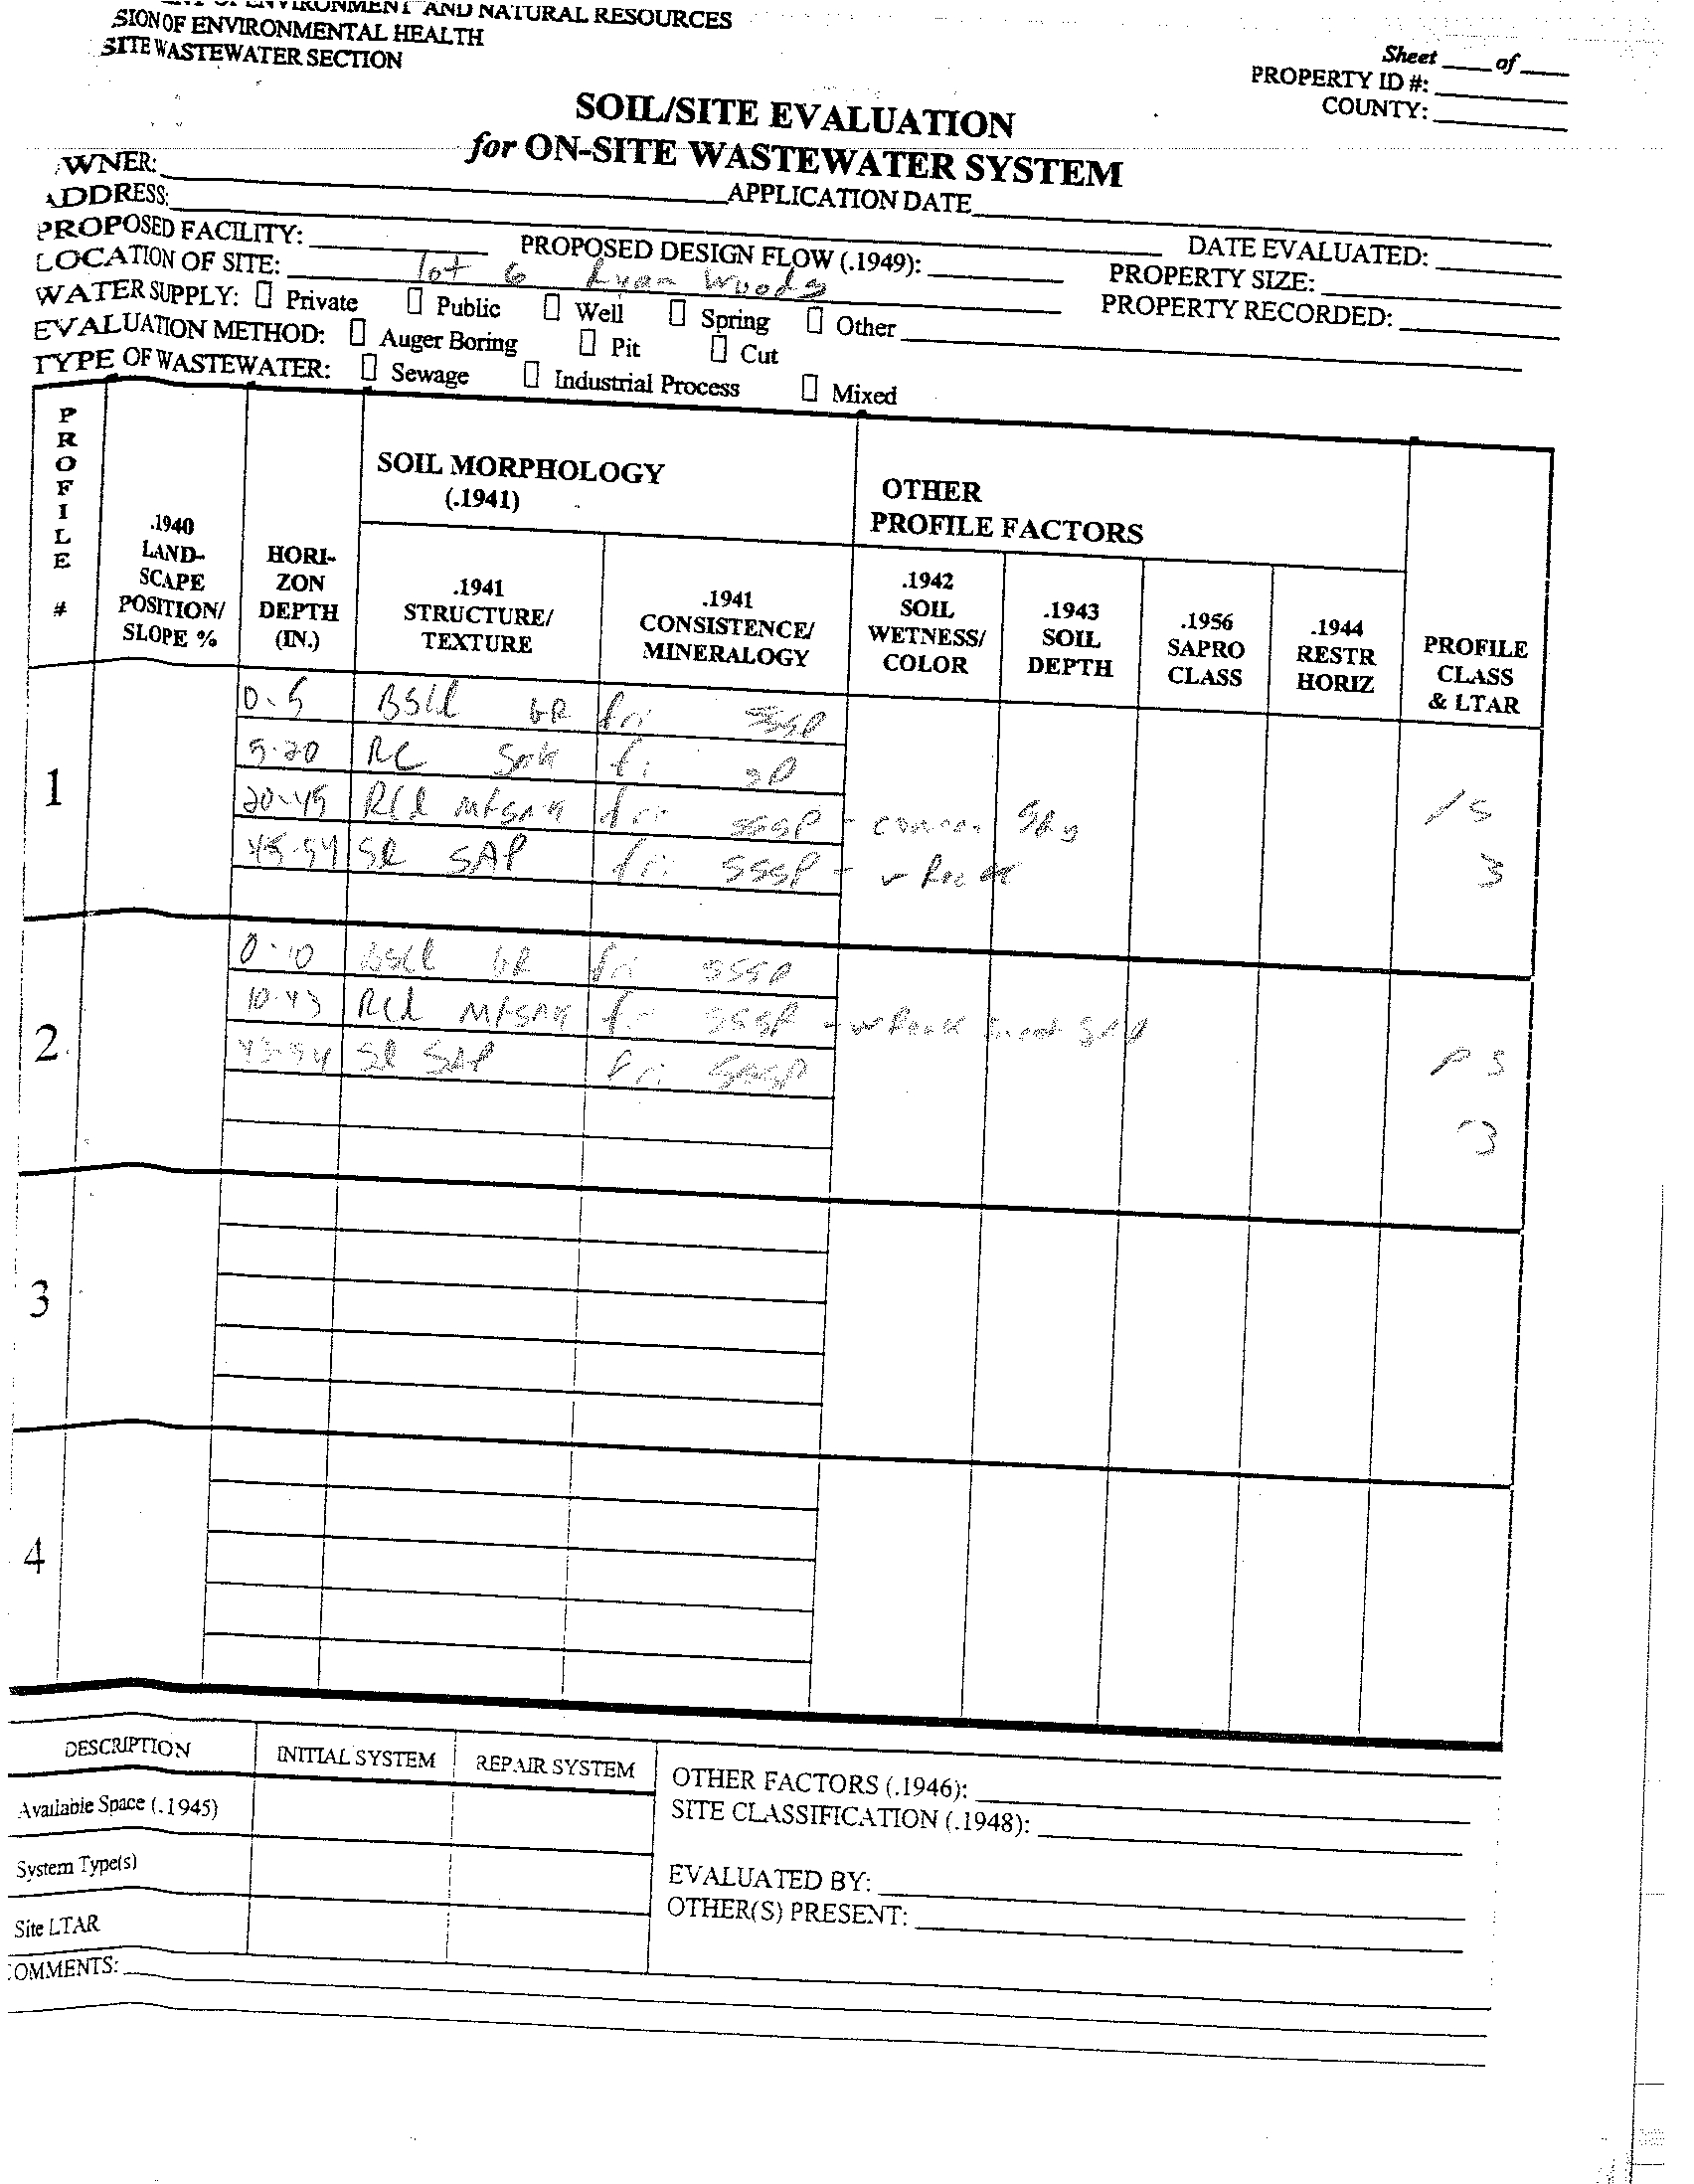 ENVIRONMENT AND NATURAL RESOURCES
SION OF ENVIRONMENTAL HEALTH
SITE WASTEWATER SECTION
Sheet ____ of ____
PROPERTY ID #:
COUNTY:
SOIL/SITE EVALUATION
for ON-SITE WASTEWATER SYSTEM
WNER:
ADDRESS: APPLICATION DATE
PROPOSED FACILITY: PROPOSED DESIGN FLOW (.1949): DATE EVALUATED:
LOCATION OF SITE: Lot 6 Ryan Woods PROPERTY SIZE:
WATER SUPPLY: Private Public Well Spring Other PROPERTY RECORDED:
EVALUATION METHOD: Auger Boring Pit Cut
TYPE OF WASTEWATER: Sewage Industrial Process Mixed
PROFILE #
.1940 LAND-SCAPE POSITION/ SLOPE %
HORI-ZON DEPTH (IN.)
SOIL MORPHOLOGY
(.1941)
.1941 STRUCTURE/ TEXTURE
.1941 CONSISTENCE/ MINERALOGY
OTHER
PROFILE FACTORS
.1942 SOIL WETNESS/ COLOR
.1943 SOIL DEPTH
.1956 SAPRO CLASS
.1944 RESTR HORIZ
PROFILE CLASS & LTAR
1
0-5 BSCl GR fri SSSP
5-20 RC SBK fi SP
20-45 RCl fri SSSP
45-54 SL SAP fri SSSP - w Rock
3
2
0-10 BSCl GR fri SSSP
10-43 RCl fri SSSP - w Rock SAP
43-54 SL SAP fri SSSP
PS
3
3
4
DESCRIPTION INITIAL SYSTEM REPAIR SYSTEM
Available Space (.1945)
System Type(s)
Site LTAR
OTHER FACTORS (.1946):
SITE CLASSIFICATION (.1948):
EVALUATED BY:
OTHER(S) PRESENT:
OMMENTS: